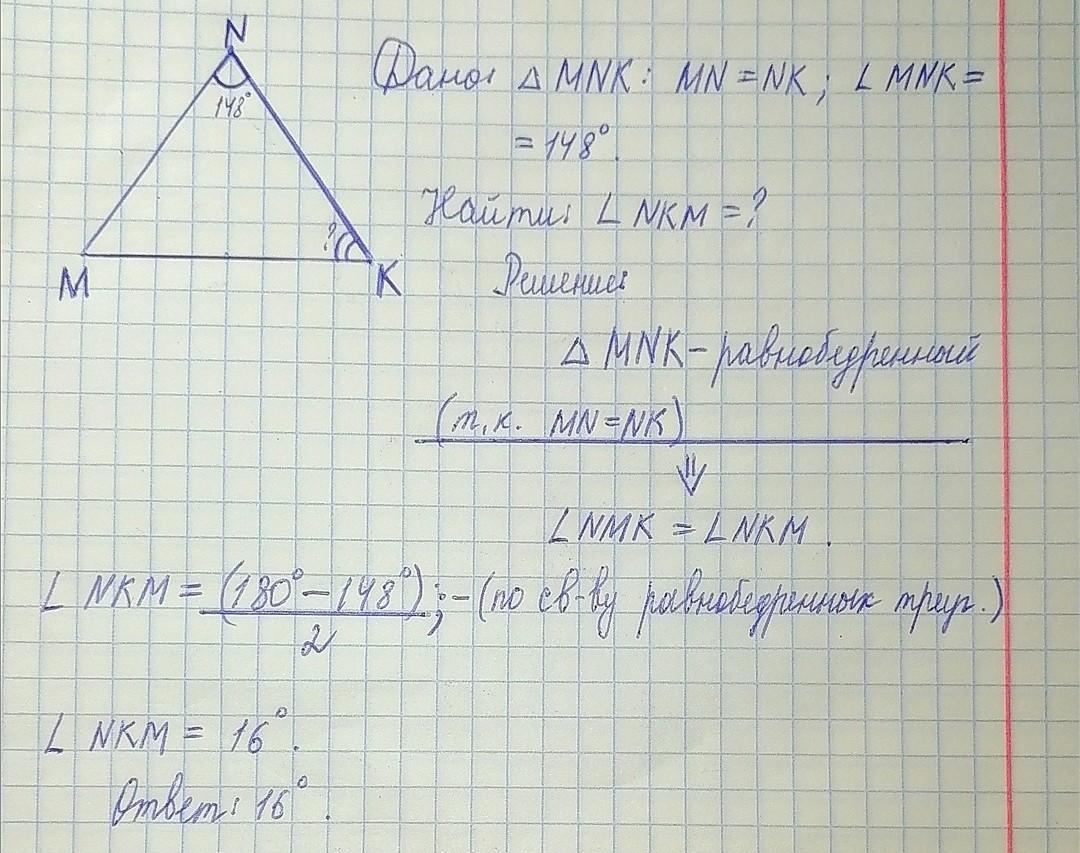 N
148°
Дано: △ MNK: MN = NK; ∠ MNK =
= 148°.
Найти: ∠ NKM = ?
?
M
K
Решение:
△ MNK – равнобедренный
(т.к. MN = NK)
⇓
∠ NMK = ∠ NKM.
∠ NKM = (180° – 148°) / 2 ; – (по св-ву равнобедренных треуг.)
∠ NKM = 16°.
Ответ: 16°.